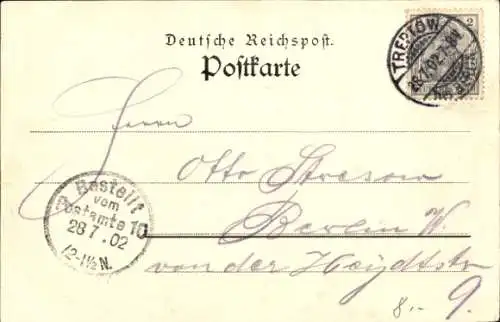 Deutsche Reichspost.
Postkarte
2
TREPTOW
28.7.02.7-8V.
Herrn
Otto Stresow
Berlin W.
von der Heydtstr
9.
Bestellt
vom
Postamte 10
28 7.02
12-1½ N.
8.-